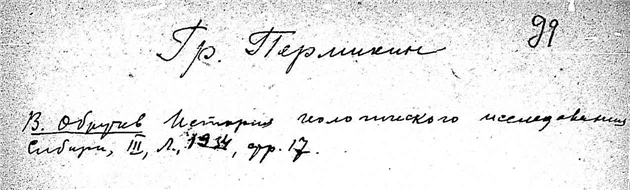 99
Гр. Пермикин
В. Обручев История геологического исследования
Сибири, III, Л., 1934, стр. 17.